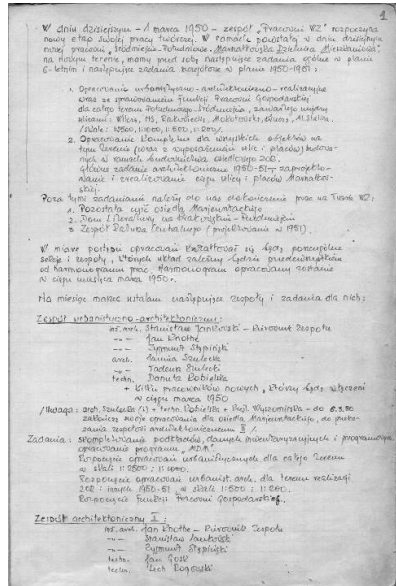 1
W dniu dzisiejszym – 1 marca 1950 – zespół "Pracowni WZ" rozpoczyna
nowy etap swojej pracy twórczej. W ramach powstałej w dniu dzisiejszym
nowej pracowni "Śródmieście-Południowe. Marszałkowska Dzielnica Mieszkaniowa"
na nowym terenie, mamy przed sobą następujące zadania ogólne w planie
6-letnim i następujące zadania w planie 1950-1951:
1. Opracowanie urbanistyczno-architektoniczno-realizacyjne
wraz ze sprawowaniem funkcji Pracowni Gospodarskiej
dla całego terenu Południowego-Śródmieścia, zawartego między
ulicami: Wilcza, Rakowiecką, Mokotowską,
/skale: 1:2500, 1:1000, 1:500, 1:200/.
2. Opracowanie kompletne dla wszystkich obiektów na
tym terenie (wraz z wyposażeniem ulic i placów)
w ramach budownictwa osiedlowego ZOR.
Główne zadanie architektoniczne 1950-51 – zaprojekto-
wanie i zrealizowanie ciągu ulicy i placów Marszałkow-
skiej.
Poza tymi zadaniami należy do nas dokończenie prac na Trasie WZ:
1. Pozostała część osiedla Mariensztackiego
2. Dom Literatury na Krakowskim-Przedmieściu
3. Zespół Ratusza Centralnego (projektowanie w 1951).
W miarę postępu opracowań kształtować się będą poszczególne
sekcje i zespoły, których układ zależny będzie przede wszystkim
od harmonogramu prac. Harmonogram opracowany zostanie
w ciągu miesiąca marca 1950 r.
Na miesiąc marzec ustalam następujące zespoły i zadania dla nich:
Zespół urbanistyczno-architektoniczny:
inż. arch. Stanisław Jankowski – Kierownik Zespołu
-„- Jan Knothe
-„- Zygmunt Stępiński
arch. Janina Szulecka
-„- Tadeusz Szulecki
techn. Danuta Kobielska
+ kilku pracowników nowych, którzy będą włączeni
w ciągu marca 1950
/Uwaga: arch. Szulecka /i/ + techn. Kobielska + do 6.3.50
zakończą swoje opracowania dla osiedla Mariensztackiego, do przeka-
zania zespołowi architektonicznemu II /.
Zadania: skompletowanie podkładów, danych inwentaryzacyjnych i programowych,
opracowanie programu "MDM"
Rozpoczęcie opracowań urbanistycznych dla całego terenu
w skali 1:2500; 1:1000.
Rozpoczęcie opracowań urbanist. arch. dla terenu realizacji
ZOR i innych 1950-51 w skali 1:500; 1:200.
Rozpoczęcie funkcji Pracowni Gospodarskiej.
Zespół architektoniczny I:
inż. arch. Jan Knothe – Kierownik Zespołu
-„- Stanisław Jankowski
-„- Zygmunt Stępiński
techn. Jan Guze
techn. Lech Rogowski